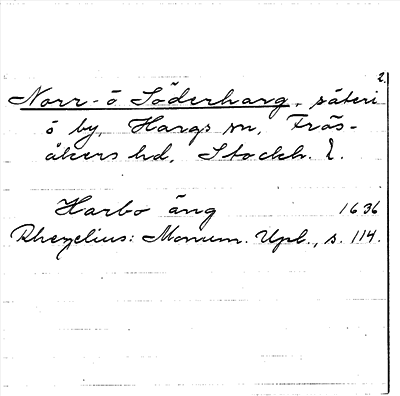 2.
Norr- o. Söderharg, säteri
o by, Hargs sn, Frös-
åkers hd, Stockh. l.
Harbo äng 1636
Rhezelius: Monum. Upl., s. 114.